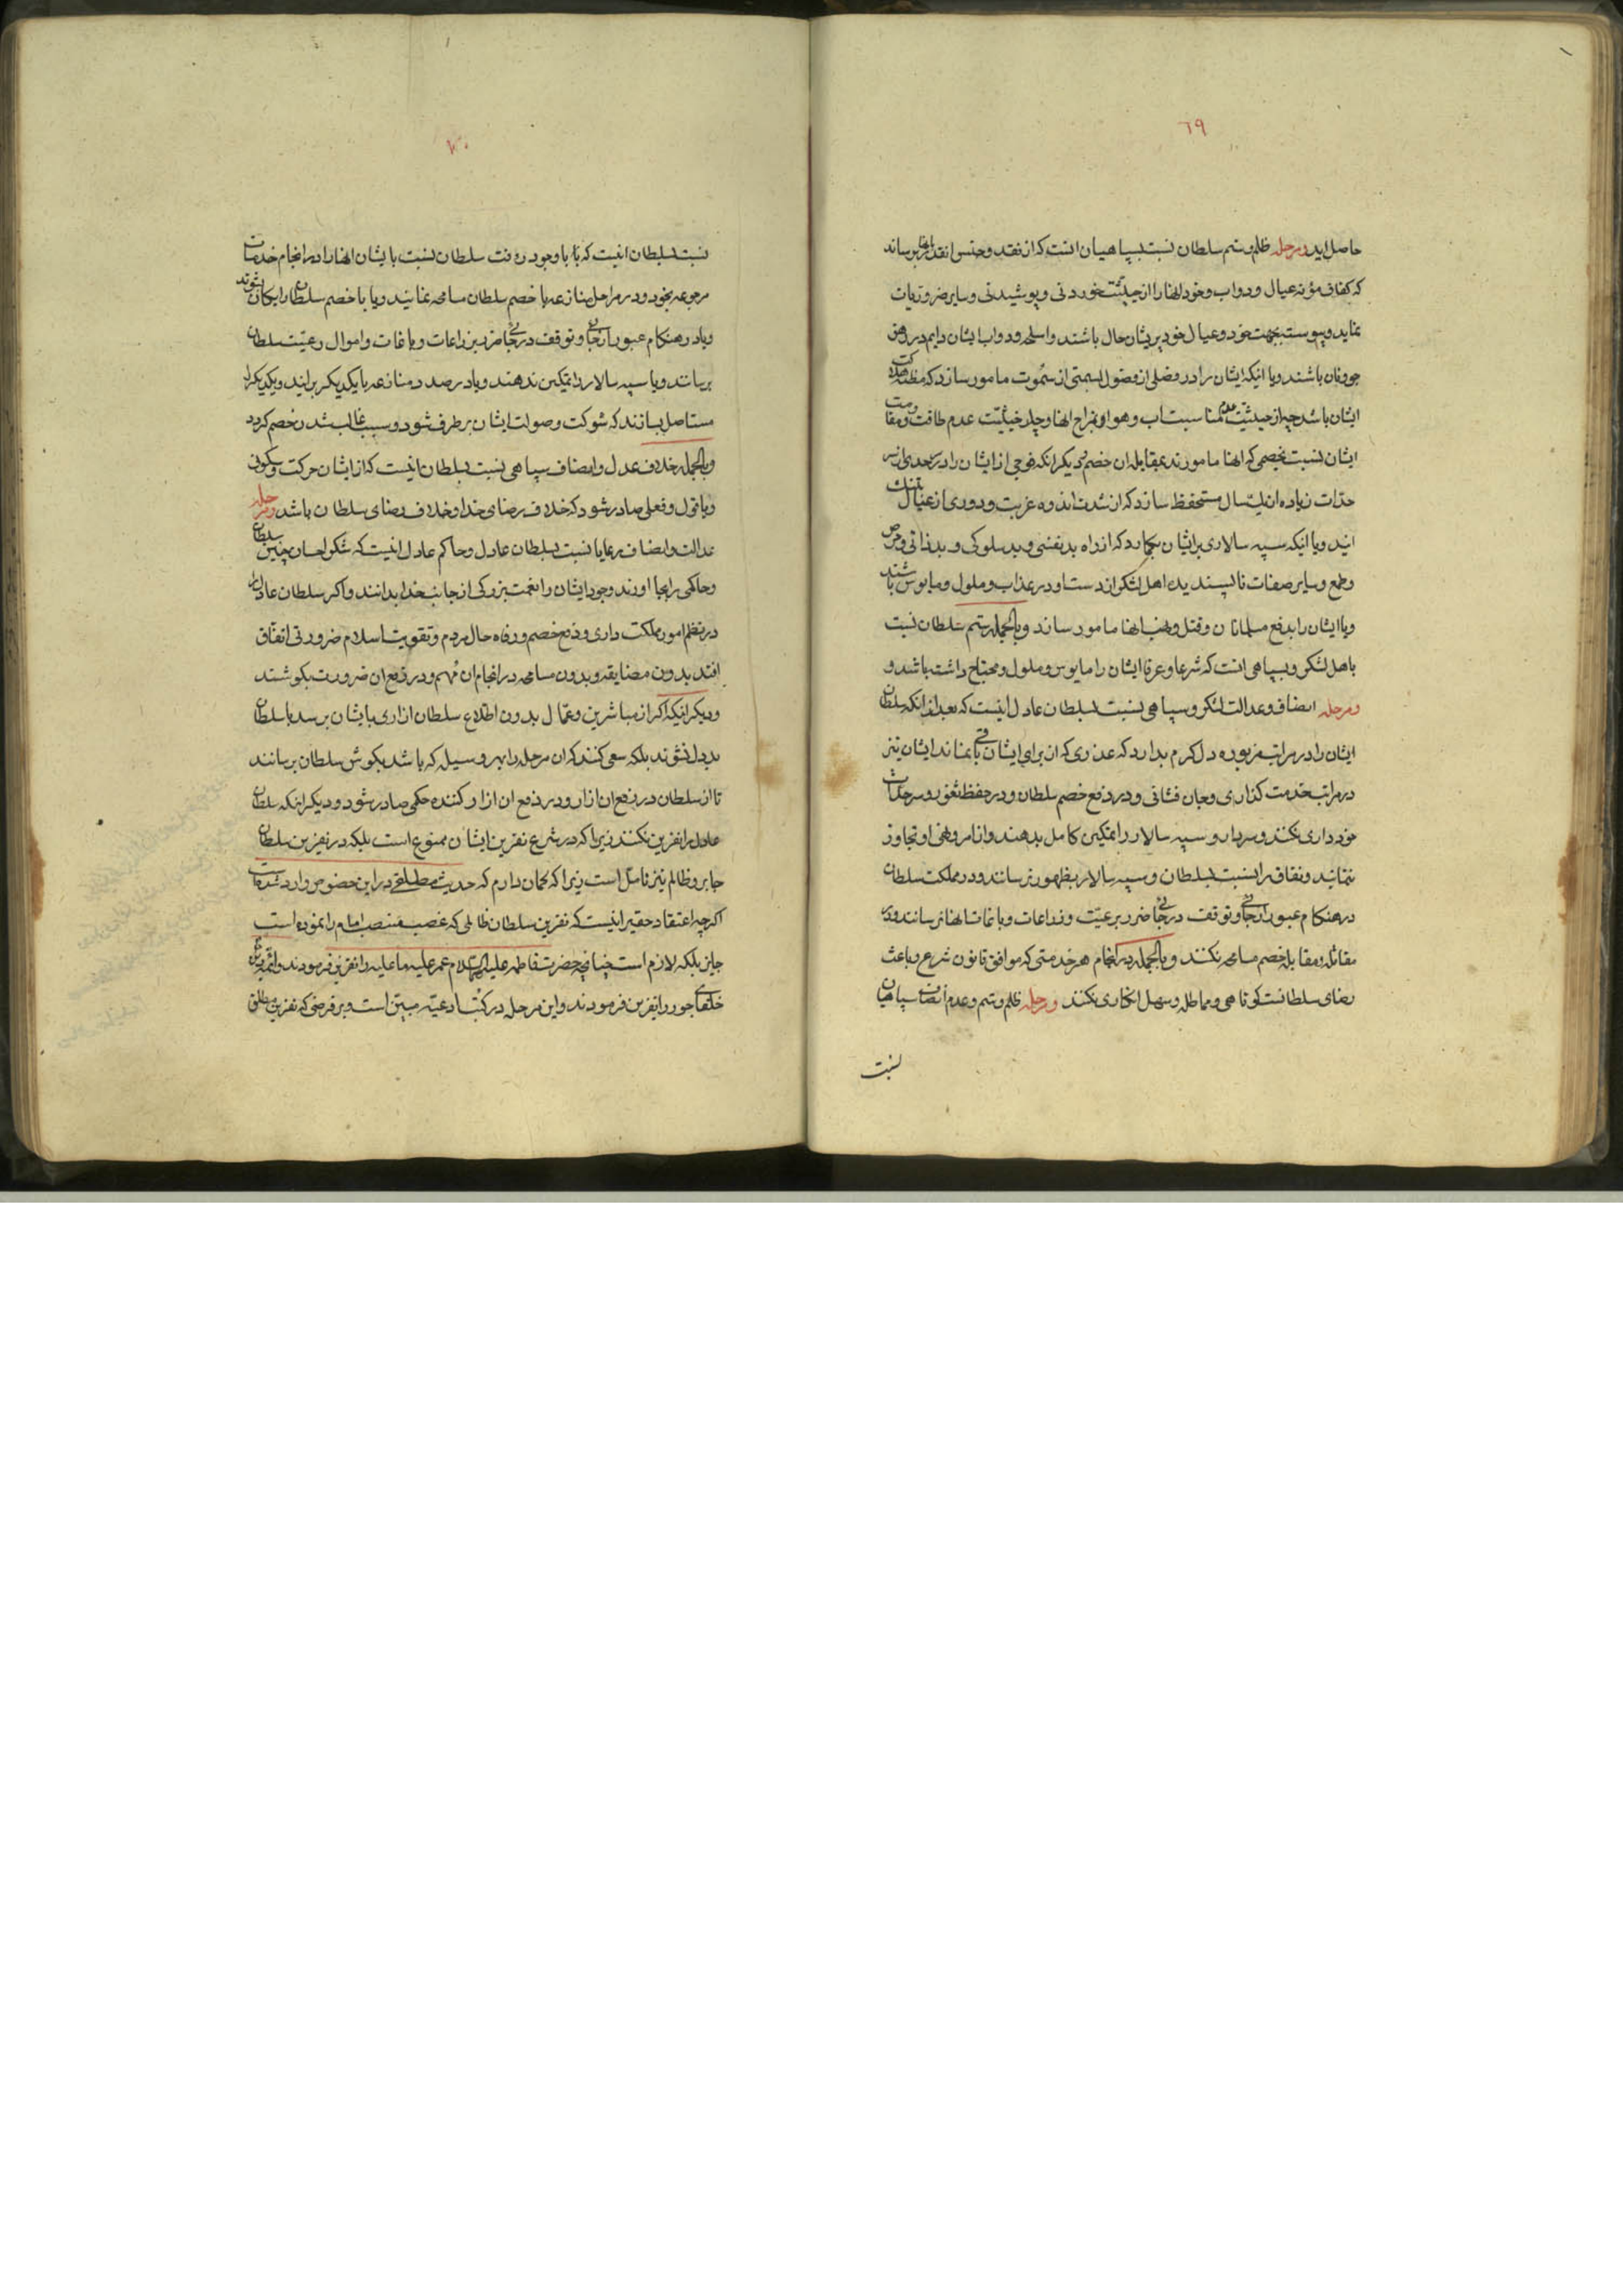 ٦٩
حاصل اید ومرحله ظلم وستم سلطان نسبت بسپاهیان انست که از نقد وجنس انقدر بانها نرساند
که کفاف مؤنه عیال ودواب وخود انها را از حیثیت خوردنی وپوشیدنی وسایر ضروریات
نماید وپیوسته بجهت خود وعیال خود پریشان حال باشند واسلحه ودواب ایشان دایم در رهن
جو ونان باشند ویا انیکه ایشان را در فصلی از فصول بسمتی از سموت مامور سازد که مظنه هلاکت
ایشان باشد چه از حیثیت عدم مناسبت اب وهوا ومزاج انها وچه از حیثیت عدم طاقت ومقاومت
ایشان نسبت بخصمی که انها مامورند بمقابله ان خصم دیگر انکه فوجی از ایشان را در سرحدی از سر
حدات زیاده از یکسال مستحفظ سازد که از شدت اندوه غربت ودوری از عیال بتنک
ایند ویا انیکه سپه سالاری بر ایشان بکمارد که از راه بد نفسی وبد سلوکی وبد ذاتی وحرص
وطمع وسایر صفات ناپسندیده اهل لشکر از دست او در عذاب وملول ومایوس باشند
ویا ایشان را بدفع مسلمانان وقتل ونهب انها مامور سازد وبالجمله ستم سلطان نسبت
باهل لشکر وسپاهی انست که شرعا وعرفا ایشان را مایوس وملول ومحتاج داشته باشد و
ومرحله انصاف وعدالت لشکر وسپاهی نسبت بسلطان عادل اینست که بعد از انکه سلطان
ایشان را در مراتب مزبوره دل کرم بدارد که عذری که از برای ایشان باقی نماند ایشان نیز
در مراتب خدمت کذاری وجان فشانی ودر دفع خصم سلطان ودر حفظ ثغور وسرحدات
خود داری نکنند وسردار وسپه سالار را تمکین کامل بدهند واز امر ونهی او تجاوز
ننمایند ونفاق را نسبت بسلطان وسپه سالار بظهور نرسانند ودر مملکت سلطان
در هنکام عبور از جائی وتوقف در جائی ضرر برعیت وزراعات وباغات انها نرسانند ودر
مقاتله ومقابله خصم مسامحه نکنند وبالجمله در انجام هر خدمتی که موافق قانون شرع وباعث
رضای سلطانست کوتاهی ومماطله وسهل انکاری نکنند ومرحله ظلم وستم وعدم انصاف سپاهیان
نسبت
٧٠
نسبت بسلطان انیست که با وجود رافت سلطان نسبت بایشان انها را در انجام خدمات
مرجوعه بخود ودر مراحل منازعه با خصم سلطان مسامحه نمایند ویا با خصم سلطان
ویا در هنکام عبور از جائی وتوقف در جائی ضرر بزراعات وباغات واموال رعیت سلطان
برسانند ویا سپه سالار را تمکین ندهند ویا در صدد منازعه با یکدیکر برایند ویکدیکر را
مستاصل بسازند که شوکت وصولت ایشان بر طرف شود وسبب غالب شدن خصم کردد
وبالجمله خلاف عدل وانصاف سپاهی نسبت بسلطان انیست که از ایشان حرکت وسکونی
ویا قول وفعلی صادر شود که خلاف رضای خدا وخلاف رضای سلطان باشد ومرحله
عدالت وانصاف رعایا نسبت بسلطان عادل وحاکم عادل انیست که شکر احسان چنین سلطان
وحاکمی را بجا اورند وجود ایشان را نعمت بزرکی از جانب خدا بدانند واکر سلطان عادل را
در نظم امور مملکت داری ودفع خصم ورفاه حال مردم وتقویت اسلام ضرورتی اتفاق
افتد بدون مضایقه وبدون مسامحه در انجام ان مهم ودر دفع ان ضرورت بکوشند
ودیکر انیکه اکر از مباشرین وعمال بدون اطلاع سلطان ازاری بایشان برسد با سلطان
بد دل نشوند بلکه سعی کنند که ان مرحله را بهر وسیله که باشد بکوش سلطان برسانند
تا از سلطان در رفع ان ازار ودر دفع ان ازار کننده حکمی صادر شود ودیکر اینکه سلطان
عادل را نفرین نکنند زیرا که در شرع نفرین ایشان ممنوع است بلیکه در نفرین سلطان
جابر وظالم نیز تامل است زیرا که کمان دارم که حدیث در این خصوص وارد شده
اکرچه اعتقاد حقیر اینست که نفرین سلطان ظالمی که غصب منصب امام را نموده است
جایز بلکه لازم است چنانچه حضرت فاطمه علیها السلام عمر علیه ما علیه را نفرین فرمودند وائمه
خلفای جور را نفرین فرمودند واین مرحله در کتب ادعیه مبین است وبر فرضی که نفرین مطلق